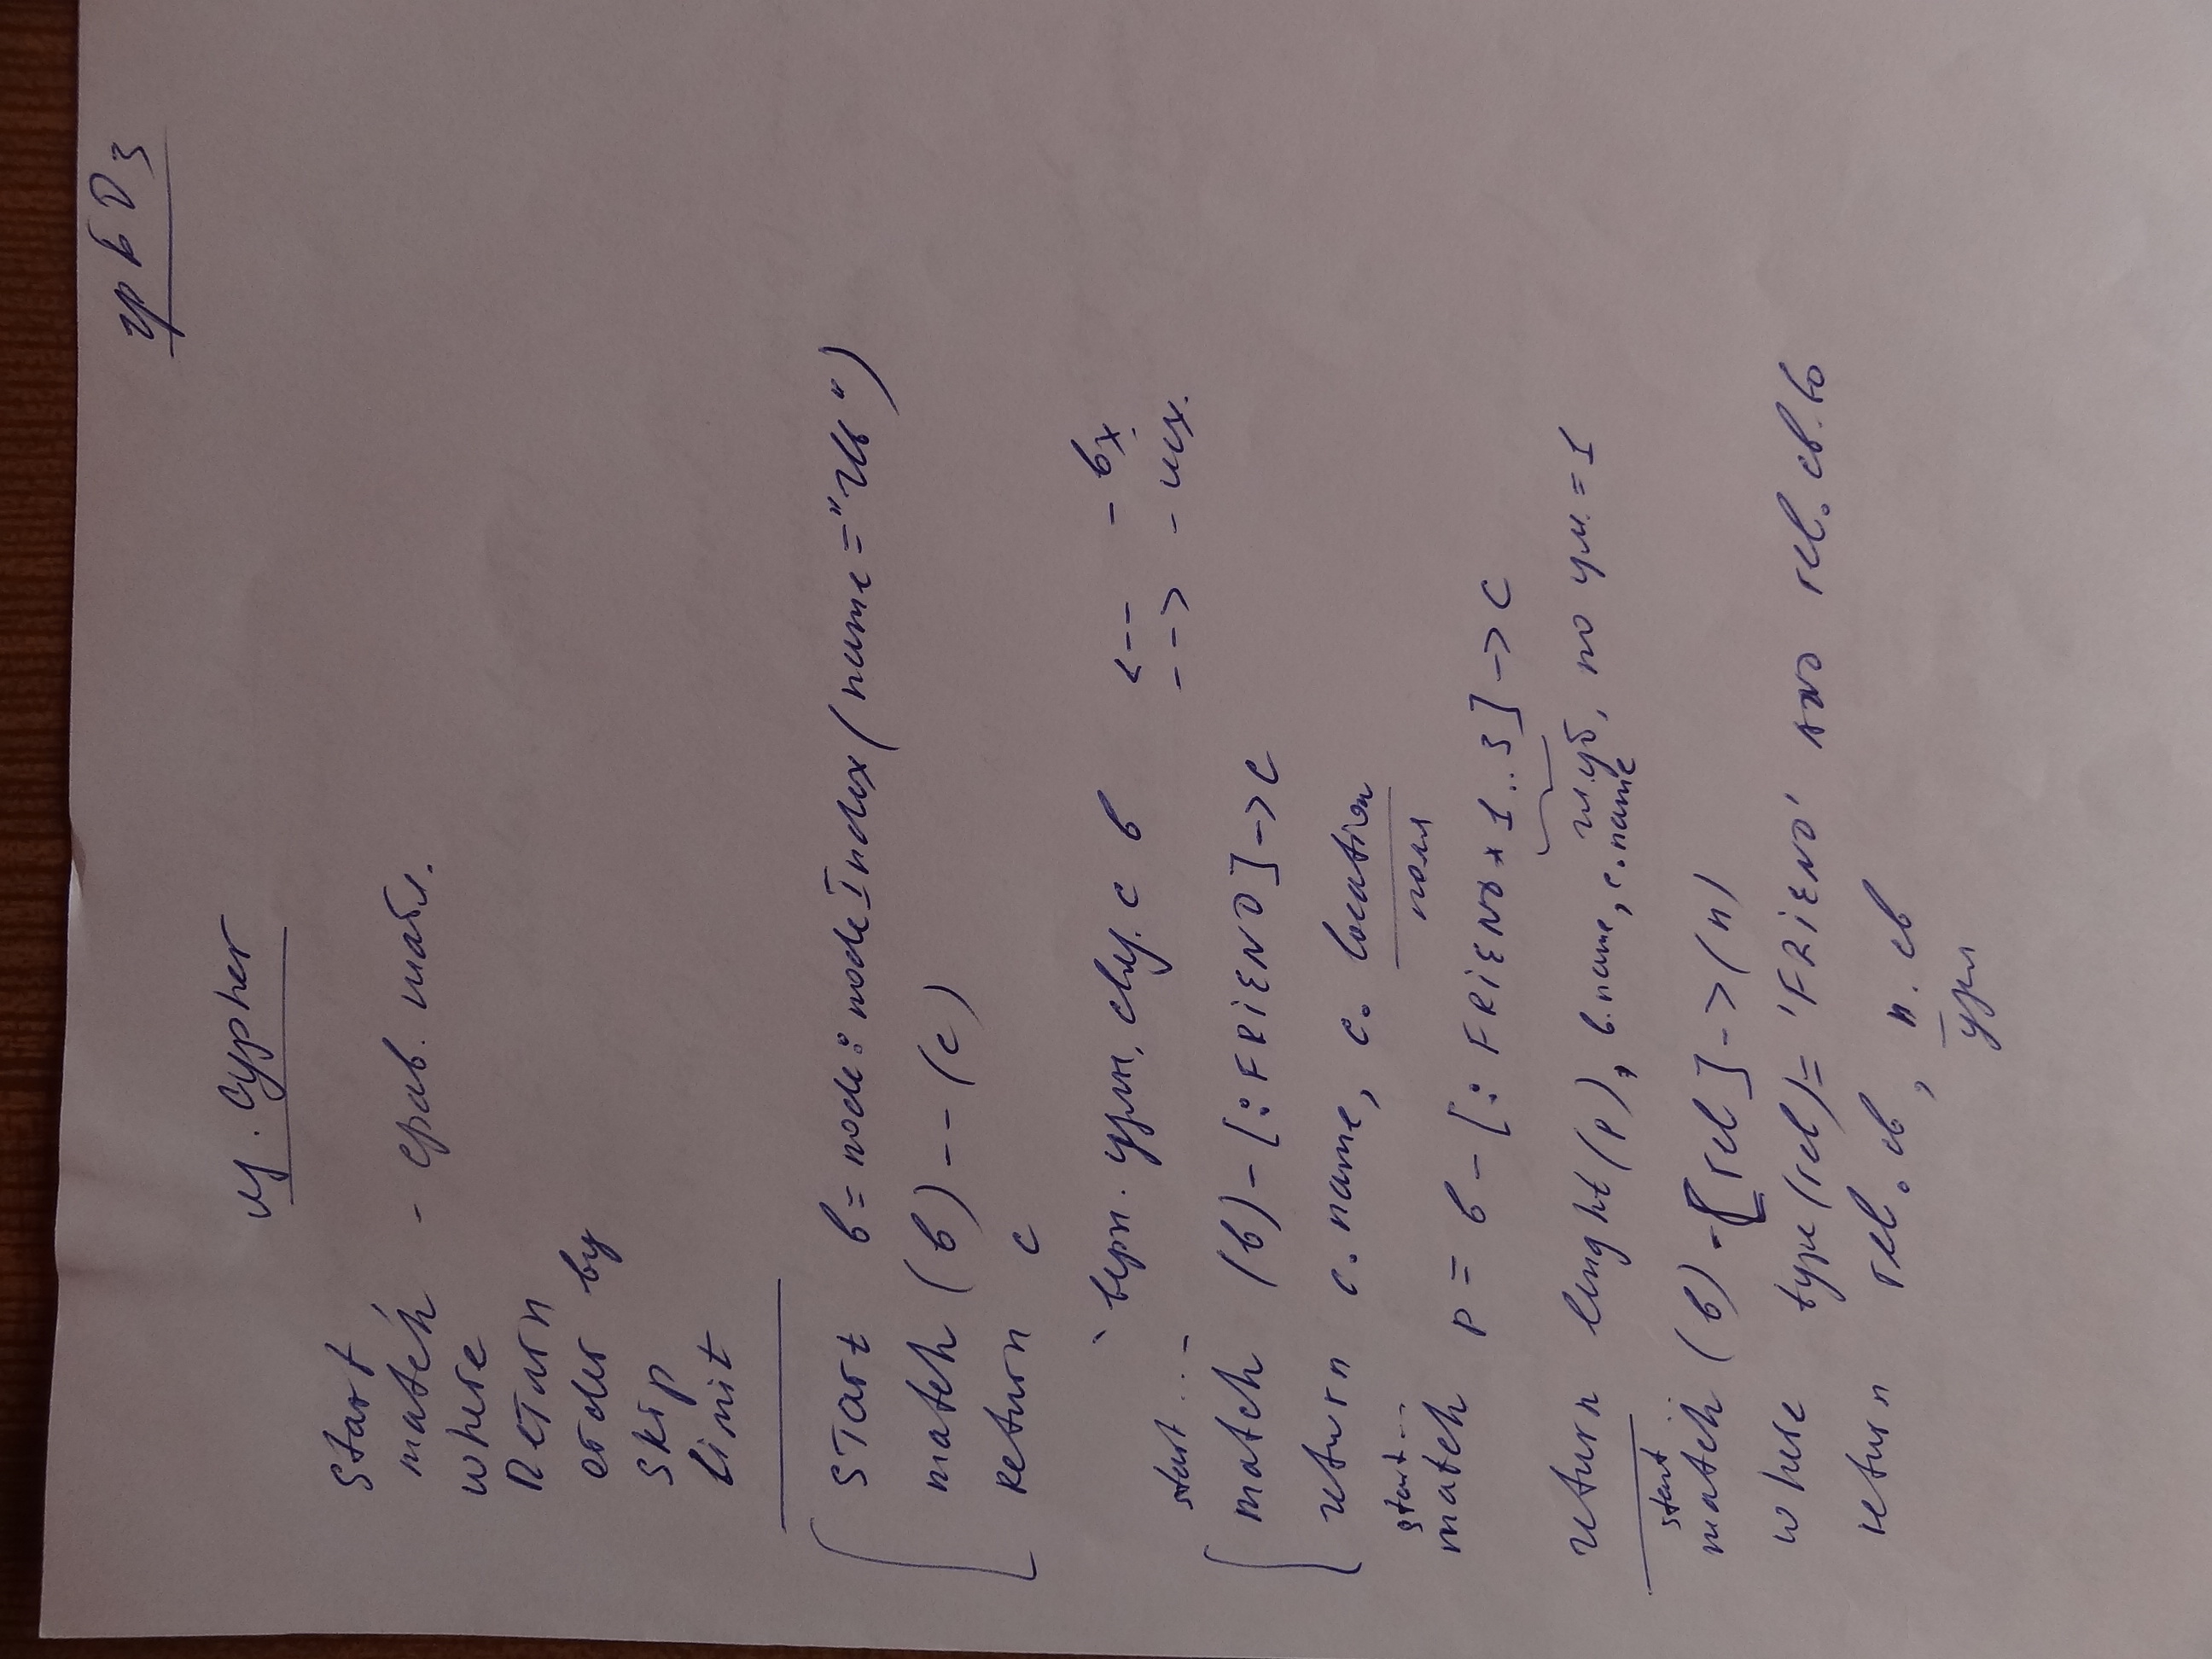 грБД 3
яз. Cypher
Start,
match - срав. шабл.
where
Return
order by
skip
limit
START b = node:nodeIndex(name="")
match (b)--(c)
Return c
верн. узлы, связ. с b <-- - вх.
start ... --> - исх.
match (b)-[:FRIEND]->c
return c.name, c. location
start... поля
match p = b-[:FRIEND*1..3]->c
return lenght(p), b.name, c.name глуб, по ум. = 1
start ..
match (b)-[rel]->(n)
where type(rel)= 'FRIEND' AND rel.св.
return rel.св, n.св
узел